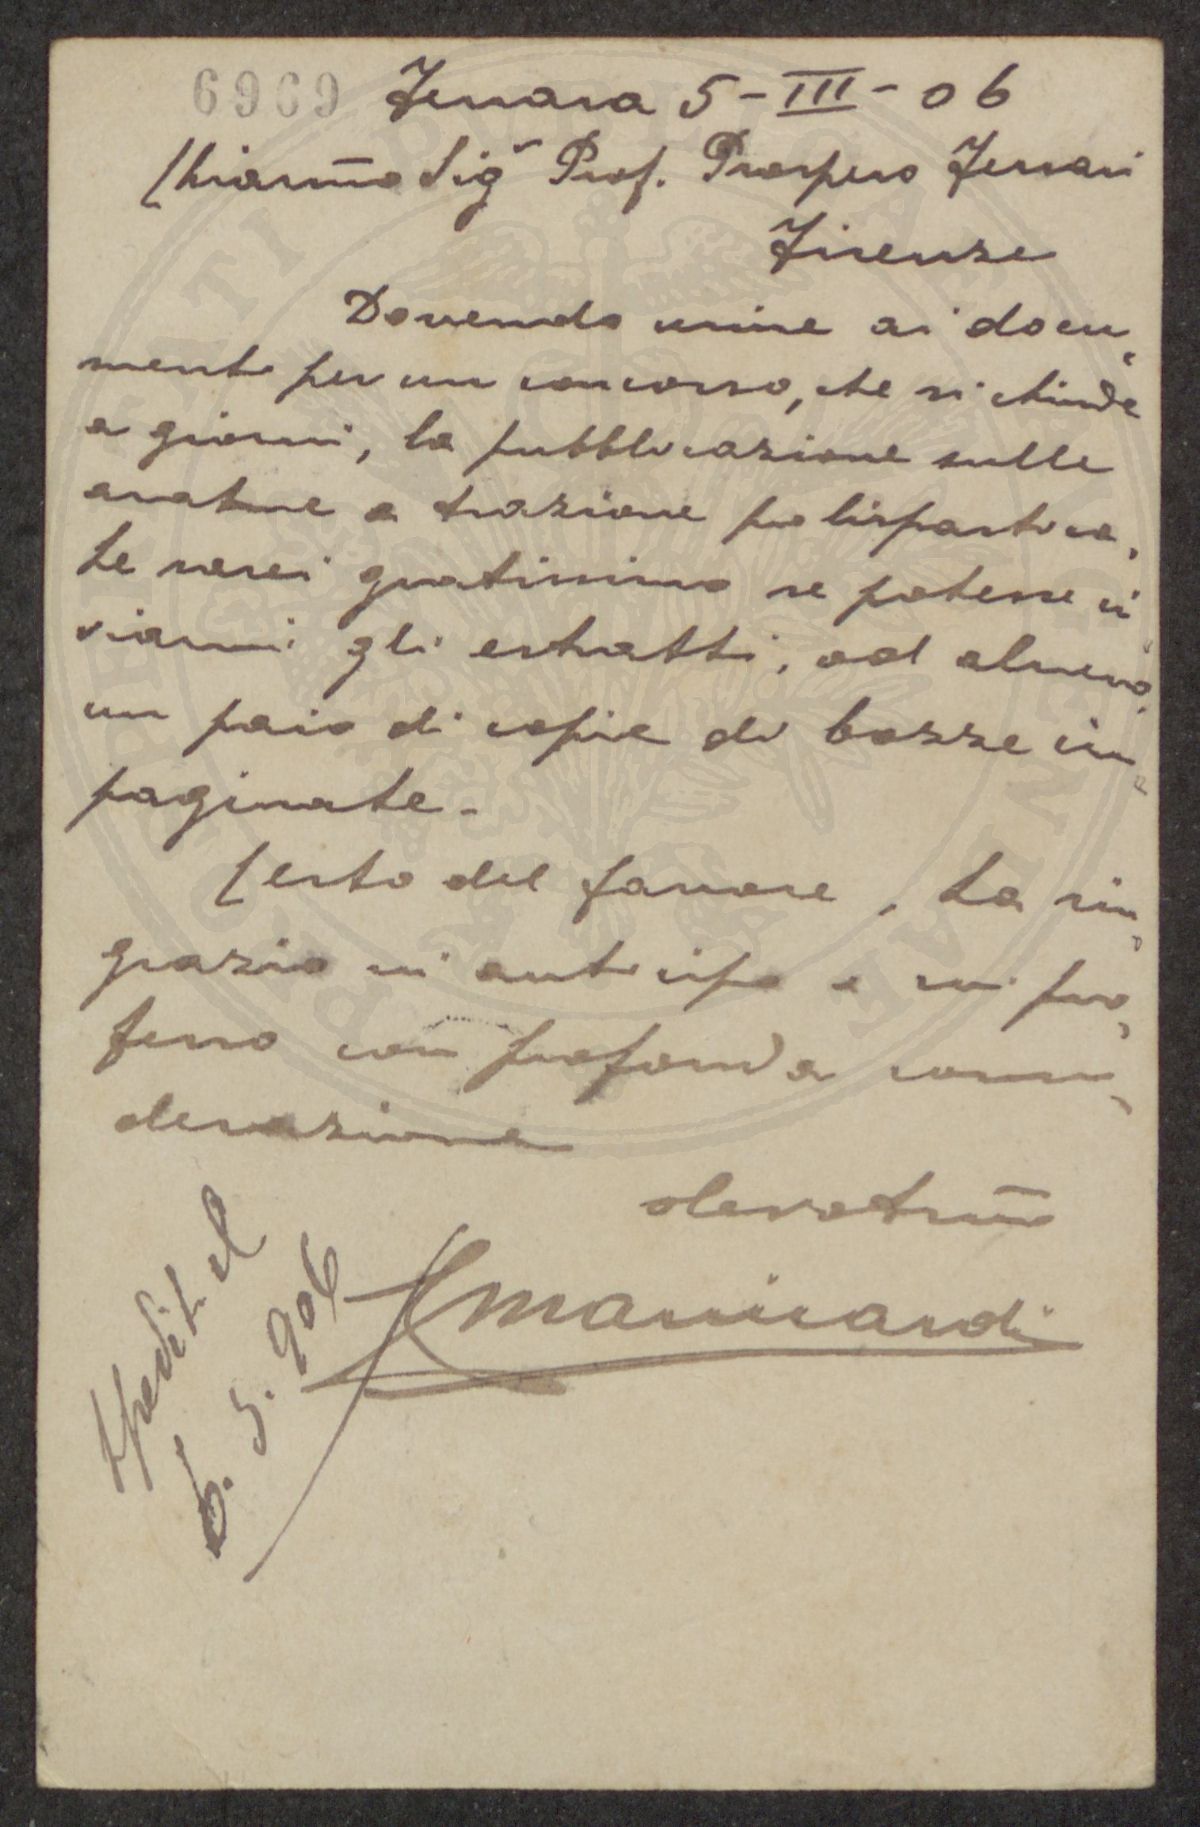 6969 Ferrara 5-III-06
Chiarm̅o Sigr Prof. Prospero Ferrari
Firenze
Dovendo unire ai docu-
menti per un concorso, che si chiude
a giorni, la pubblicazione sulle
arature a trazione polispastica,
Le sarei gratissimo se potesse in-
viarmi gli estratti, od almeno
un paio di copie di bozze im-
paginate.
Certo del favore, La rin-
grazio in anticipo e mi pro-
fesso con profonda consi-
derazione
devotm̅o
Maninardi
Spedite il
6. 3. 906